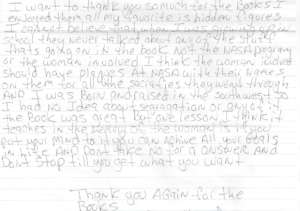 I want to thank you so much for the Books I
enjoyed them all my favorite is hidden figures
I cannot believe that
they never talked about any of the stuff
thats going on in the book not the NASA program
or the woman involved I think the woman
should have plaques At NASA with their names
on them for all the they went through
And I was Born and raised in the
I had No Idea about segregation or any of it
the Book was great but one lesson I think it
teaches in the of the woman is if you
put your mind to it you can Achive All your Goals
in life And Dont take No for a ANSWER And
Dont Stop till you get what you want
Thank you AGAin for the
Books